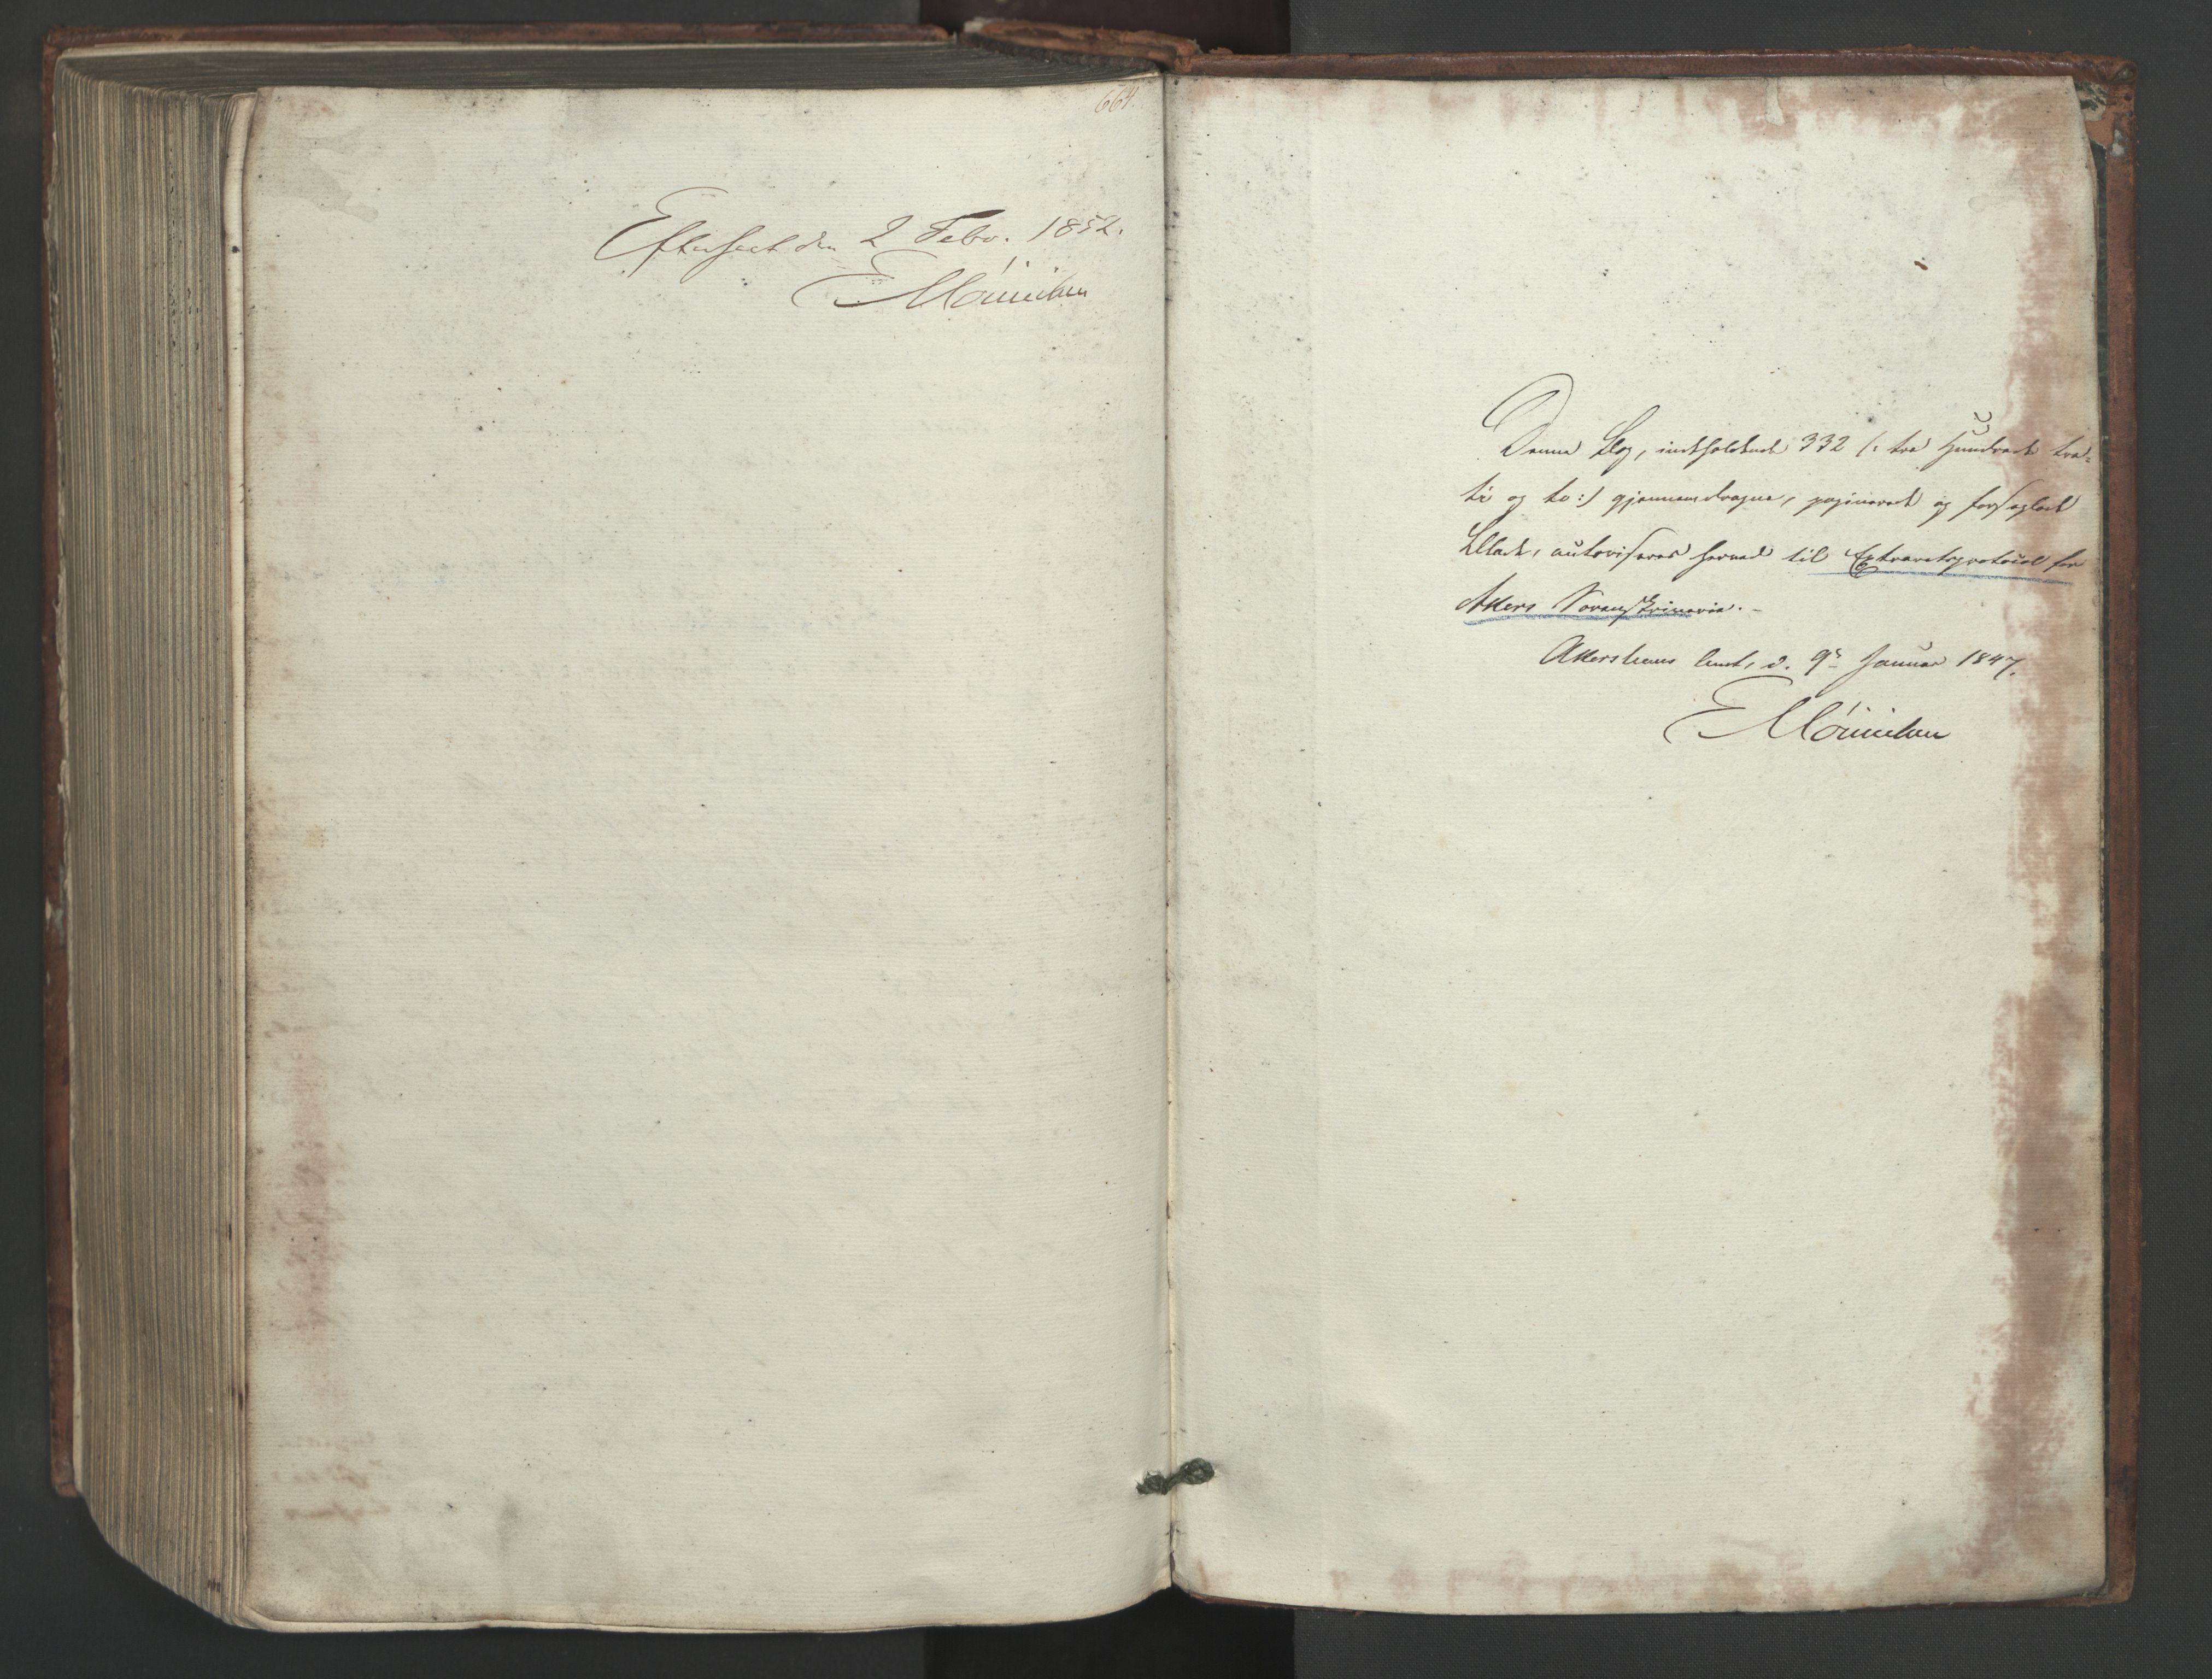 664.
Efterseet den 2 Febr. 1852.
EMünichen
Denne Bog, indeholdende 332 /: tre Hundrede tre=
ti og to :/ gjennemdragne, paginerede og forseglede
Blade, autoriseres herved til Extraretsprotocol for
Akers Sorenskriverie. -
Akershuus Amt, d. 9de Januar 1847.
EMünichen